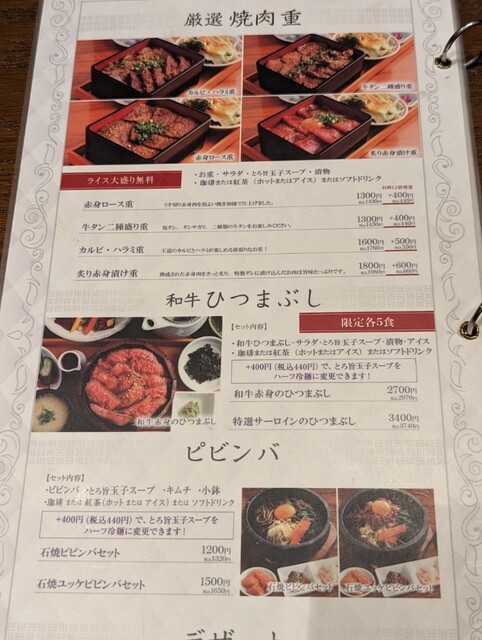 厳選 焼肉重
カルビ・ハラミ重
牛タン二種盛り重
赤身ロース重
炙り赤身漬け重
ライス大盛り無料
・お重・サラダ・とろ旨玉子スープ・漬物
・珈琲または紅茶（ホットまたはアイス）またはソフトドリンク
お肉1.5倍増量
赤身ロース重 1300円 +400円
税込1430円 税込440円
牛タン二種盛り重 塩タン、タンサガリ、二種類の牛タンをお楽しみください。 1300円 +400円
税込1430円 税込440円
カルビ・ハラミ重 王道のカルビとハラミが楽しめる欲張りなお重！ 1600円 +500円
税込1760円 税込550円
炙り赤身漬け重 熟成された赤身肉をさっと炙り、特製ダレに漬け込んだお肉は旨味たっぷりです。 1800円 +600円
税込1980円 税込660円
和牛ひつまぶし
【セット内容】
限定各5食
・和牛ひつまぶし・サラダ・とろ旨玉子スープ・漬物・アイス
・珈琲または紅茶（ホットまたはアイス）またはソフトドリンク
+400円（税込440円）で、とろ旨玉子スープを
ハーフ冷麺に変更できます！
和牛赤身のひつまぶし
和牛赤身のひつまぶし 2700円
税込2970円
特選サーロインのひつまぶし 3400円
税込3740円
ピビンバ
【セット内容】
・ピビンバ ・とろ旨玉子スープ ・キムチ ・小鉢
・珈琲 または 紅茶（ホット または アイス）または ソフトドリンク
+400円（税込440円）で、とろ旨玉子スープを
ハーフ冷麺に変更できます！
石焼ピビンバセット 1200円
税込1320円
石焼ユッケピビンバセット 1500円
税込1650円
石焼ピビンバセット
石焼ユッケピビンバセット